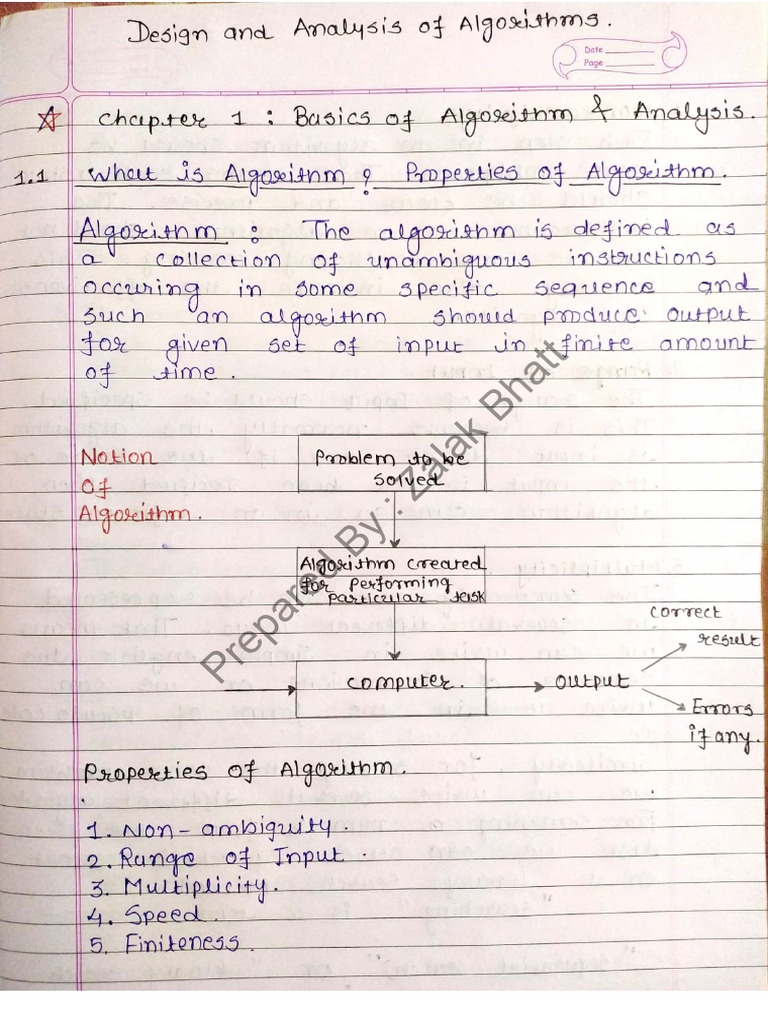 Design and Analysis of Algorithms.
Date
Page
Chapter 1 : Basics of Algorithm & Analysis.
1.1 What is Algorithm ? Properties of Algorithm.
Algorithm : The algorithm is defined as
a collection of unambiguous instructions
occuring in some specific sequence and
such an algorithm should produce output
for given set of input in finite amount
of time.
Notion
of
Algorithm.
Problem to be
solved
Algorithm created
for performing
particular task
computer.
output
correct
result
Errors
if any.
Prepared By : Zalak Bhatt
Properties of Algorithm.
1. Non-ambiguity.
2. Range of Input.
3. Multiplicity.
4. Speed.
5. Finiteness.